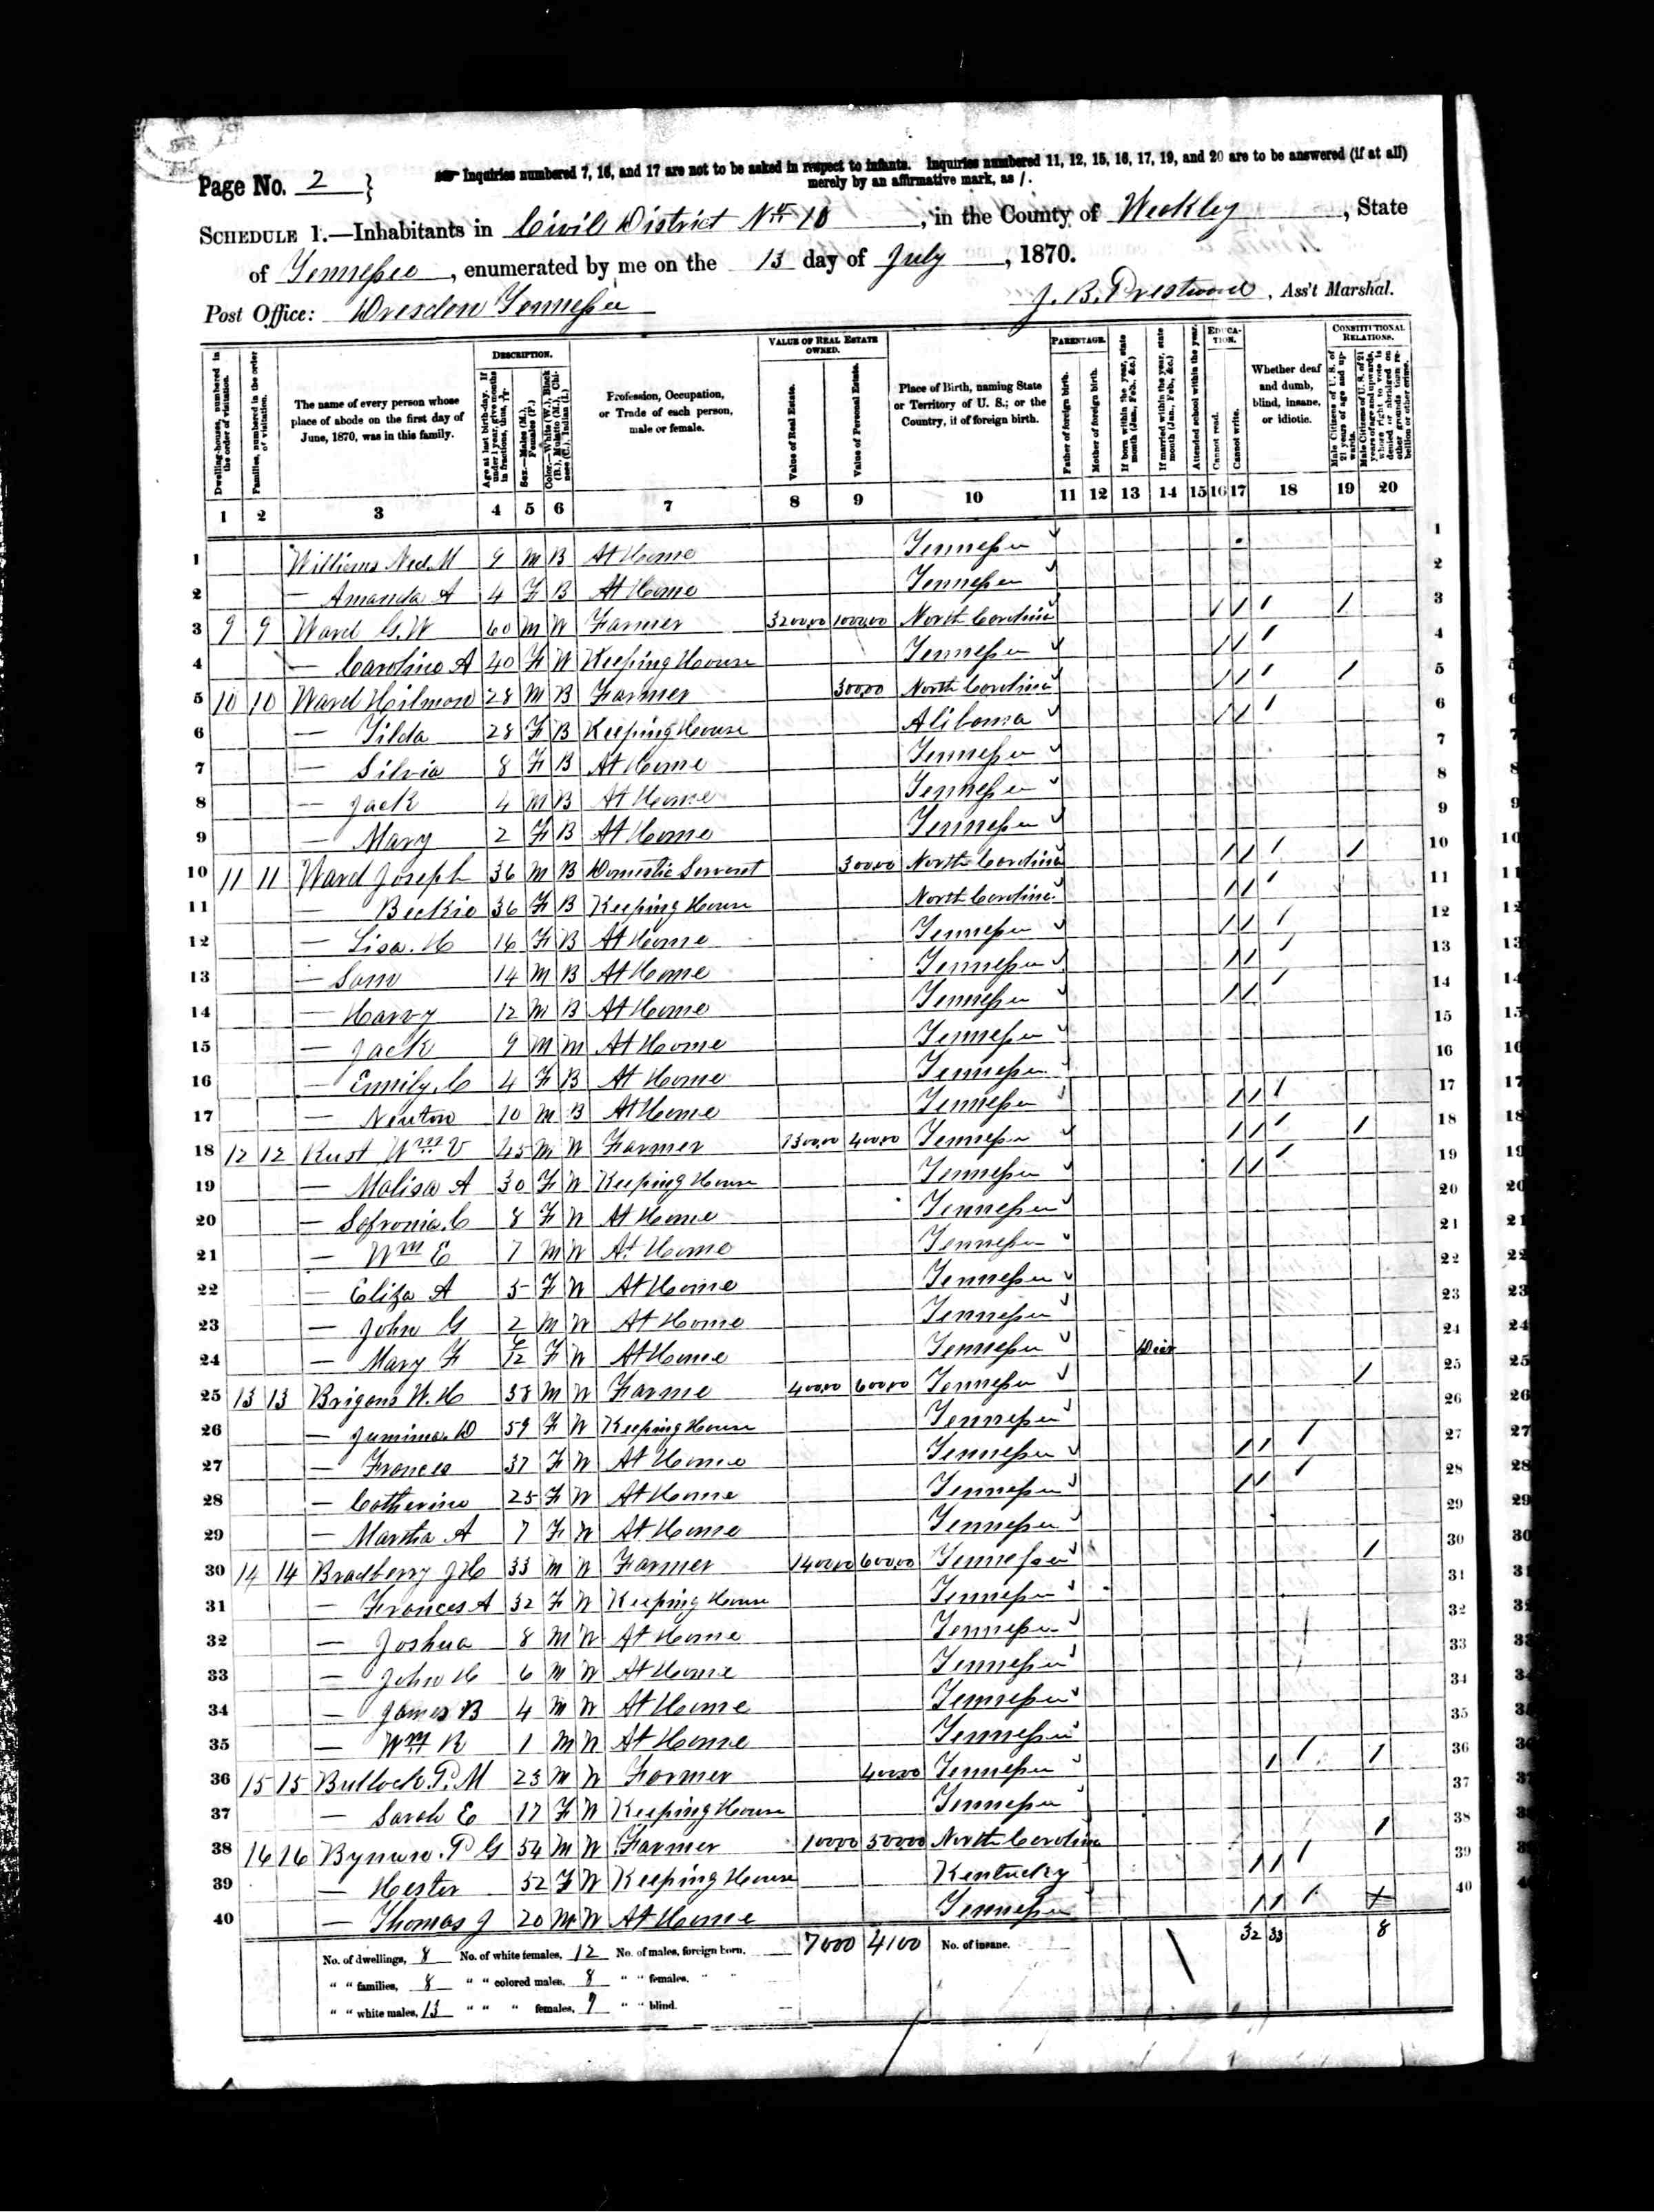 Page No. 2 }
Inquiries numbered 7, 16, and 17 are not to be asked in respect to infants. Inquiries numbered 11, 12, 15, 16, 17, 19, and 20 are to be answered (if at all)
merely by an affirmative mark, as /.
SCHEDULE 1.—Inhabitants in Civil District No 10, in the County of Weekley, State
of Tennessee, enumerated by me on the 13 day of July, 1870.
Post Office: Dresden Tennessee
J. B. Prestwood, Ass't Marshal.
Dwelling-houses, numbered in the order of visitation.
Families, numbered in the order of visitation.
The name of every person whose place of abode on the first day of June, 1870, was in this family.
DESCRIPTION.
Age at last birth-day. If under 1 year, give months in fractions, thus, 3/12.
Sex.—Males (M.), Females (F.)
Color.—White (W.), Black (B.), Mulatto (M.), Chinese (C.), Indian (I.)
Profession, Occupation, or Trade of each person, male or female.
VALUE OF REAL ESTATE OWNED.
Value of Real Estate.
Value of Personal Estate.
Place of Birth, naming State or Territory of U. S.; or the Country, if of foreign birth.
PARENTAGE.
Father of foreign birth.
Mother of foreign birth.
If born within the year, state month (Jan., Feb., &c.)
If married within the year, state month (Jan., Feb., &c.)
Attended school within the year.
EDUCATION.
Cannot read.
Cannot write.
Whether deaf and dumb, blind, insane, or idiotic.
CONSTITUTIONAL RELATIONS.
Male Citizens of U. S. of 21 years of age and upwards.
Male Citizens of U. S. of 21 years of age and upwards, whose right to vote is denied or abridged on other grounds than rebellion or other crime.
1 2 3 4 5 6 7 8 9 10 11 12 13 14 15 16 17 18 19 20
1 Williams Ned. M 9 M B At Home Tennessee 1
2 — Amanda A 4 F B At Home Tennessee 2
3 9 9 Ward G. W 60 M W Farmer 3200,00 1000,00 North Carolina / / / / 3
4 — Caroline A 40 F W Keeping House Tennessee / / / 4
5 10 10 Ward Hilmon 28 M B Farmer 300,00 North Carolina / / / / 5
6 — Tilda 28 F B Keeping House Alibama / / / 6
7 — Silvia 8 F B At Home Tennessee 7
8 — Jack 4 M B At Home Tennessee 8
9 — Mary 2 F B At Home Tennessee 9
10 11 11 Ward Joseph 36 M B Domestic Servent 300,00 North Carolina / / / / 10
11 — Beckie 36 F B Keeping House North Carolina / / / 11
12 — Lisa. H 16 F B At Home Tennessee / / / 12
13 — Sam 14 M B At Home Tennessee / / / 13
14 — Harvy 12 M B At Home Tennessee / / / 14
15 — Jack 9 M M At Home Tennessee 15
16 — Emily. C 4 F B At Home Tennessee 16
17 — Newton 10 M B At Home Tennessee / / / 17
18 12 12 Rust Wm V 45 M W Farmer 1300,00 400,00 Tennessee / / / / 18
19 — Malisa A 30 F W Keeping House Tennessee / / / 19
20 — Sofronia. C 8 F W At Home Tennessee 20
21 — Wm E 7 M W At Home Tennessee 21
22 — Eliza A 5 F W At Home Tennessee 22
23 — John G 2 M W At Home Tennessee 23
24 — Mary F 6/12 F W At Home Tennessee 24
25 13 13 W. H 38 M W Farme 400,00 600,00 Tennessee / 25
26 — Jemima. D 59 F W Keeping House Tennessee 26
27 — Frances 37 F W At Home Tennessee / / / 27
28 — Catherine 25 F W At Home Tennessee / / / 28
29 — Martha A 7 F W At Home Tennessee 29
30 14 14 Bradberry J H 33 M W Farmer 1400,00 600,00 Tennessee / 30
31 — Frances A 32 F W Keeping House Tennessee 31
32 — Joshua 8 M W At Home Tennessee 32
33 — John H 6 M W At Home Tennessee 33
34 — James B 4 M W At Home Tennessee 34
35 — Wm R 1 M W At Home Tennessee 35
36 15 15 Bullock P. M 23 M W Farmer 400,00 Tennessee / / / 36
37 — Sarah E 17 F W Keeping House Tennessee 37
38 16 16 Bynum. P G 54 M W Farmer 100,00 500,00 North Carolina / 38
39 — Hester 52 F W Keeping House Kentucky / / / 39
40 — Thomas J 20 M W At Home Tennessee / / / 40
No. of dwellings, 8 No. of white females, 12 No. of males, foreign born. 7000 4100 No. of insane. 32 33 8
" " families, 8 " " colored males, 8 " " females, "
" " white males, 13 " " " females, 7 " " blind.